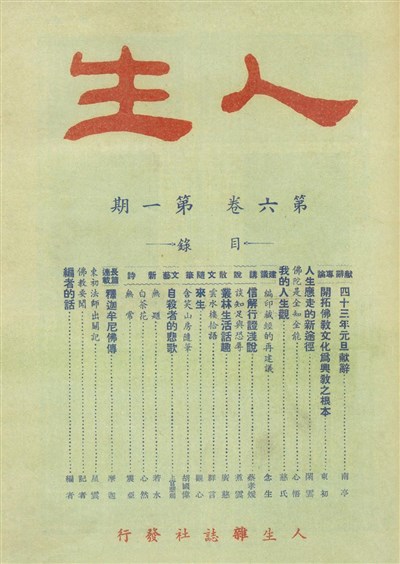 人生
第六卷 第一期
目錄
獻辭 四十三年元旦獻辭 南亭
專論 開拓佛教文化為興教之根本 東初
人生應走的新途徑 閑雲
佛陀是全知全能 心悟
我的人生觀 慈氏
建議 編印藏經的再建議 念生
講 信解行證淺說 蔡孝媛
說 談知足與忍辱 煮雲
散 叢林生活話趣 廣慈
文 雲水樓拾語
隨 來生 觀心
筆 含笑山房隨筆 胡國偉
文藝 自殺者的悲歌
新 無題 若水
白茶花 心然
詩 無常
長篇連載 釋迦牟尼佛傳 摩迦
東初法師出關記 星雲
佛教要聞 記者
編者的話 編者
人生雜誌社發行